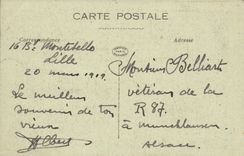 CARTE POSTALE
Correspondance
Adresse
16 Bd Montebello
Lille
20 mars 1919
Le meilleur
souvenir de ton
vieux
Monsieur Belliart
vétéran de la
R 87
à Munchhausen
Alsace